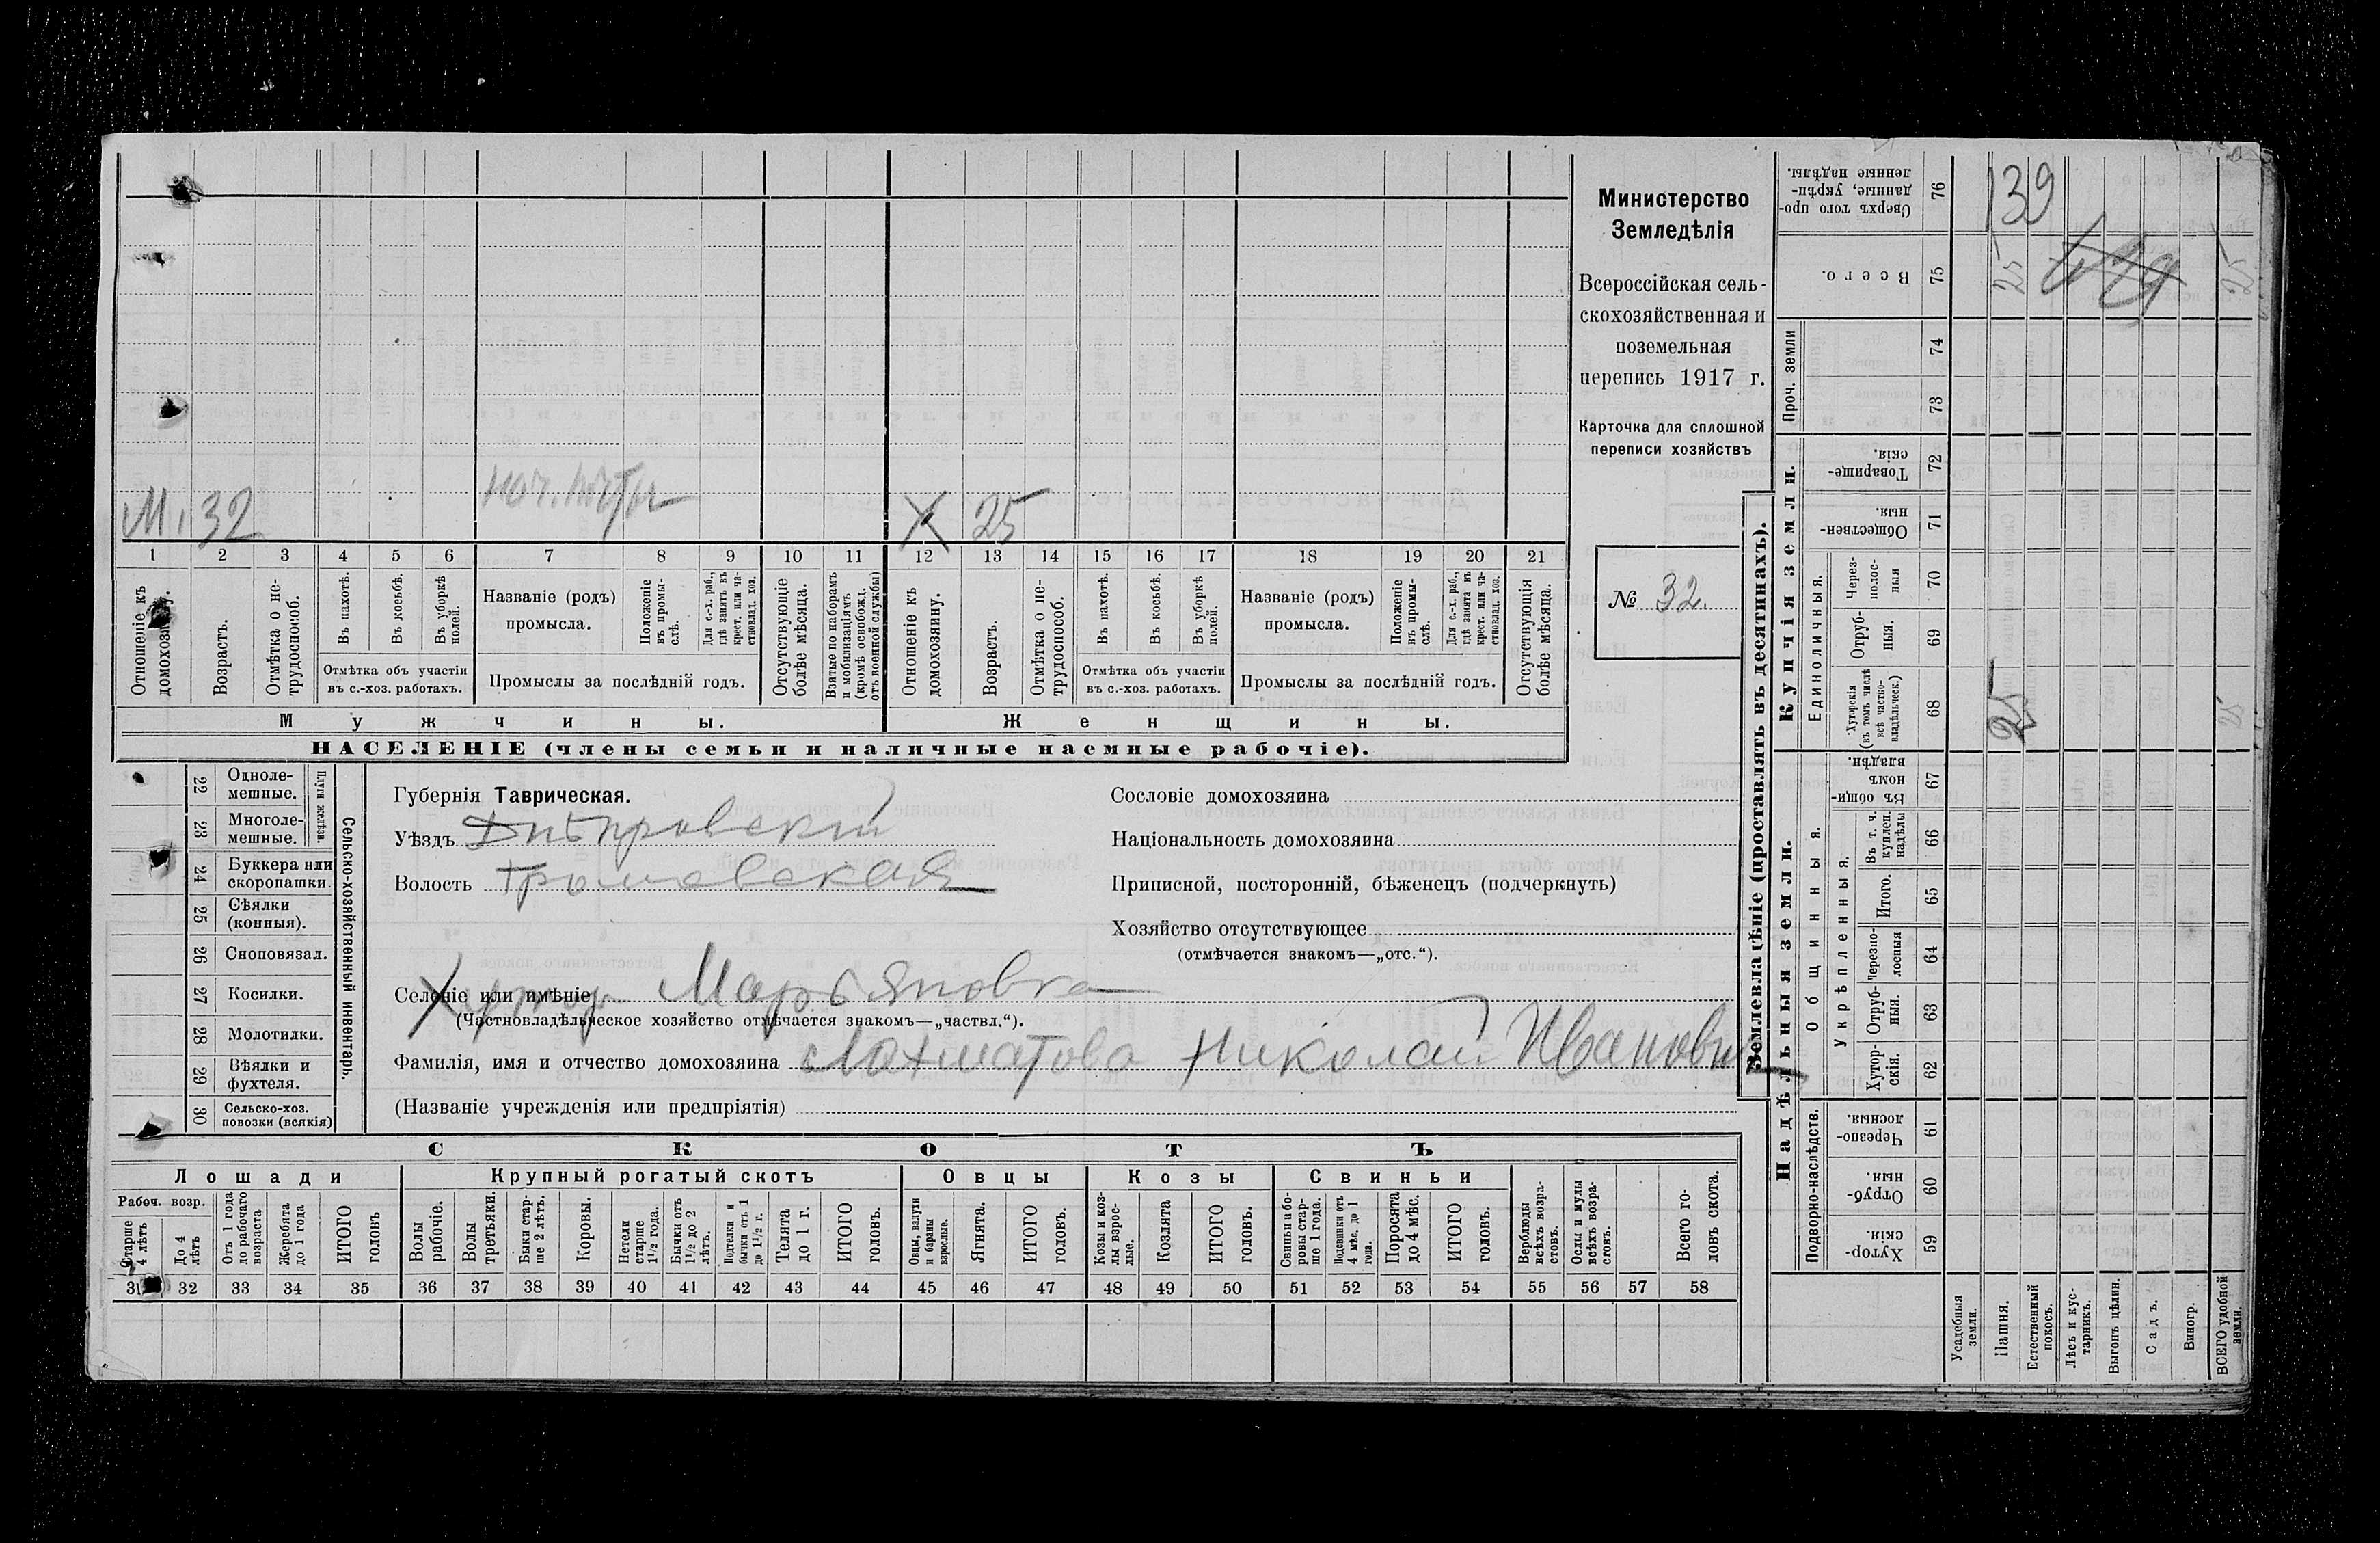 М. 32
Х 25
1 2 3 4 5 6 7 8 9 10 11 12 13 14 15 16 17 18 19 20 21
Отношеніе къ домохозяину.
Возрастъ.
Отмѣтка о не-
трудоспособ.
Въ пахотѣ.
Въ косьбѣ.
Въ уборкѣ
полей.
Отмѣтка объ участіи
въ с.-хоз. работахъ.
Названіе (родъ)
промысла.
Положеніе
въ промы-
слѣ.
Для с.-х. раб.,
гдѣ занятъ въ
крест. или ча-
стновлад. хоз.
Промыслы за послѣдній годъ.
Отсутствующіе
болѣе мѣсяца.
Взятые по наборамъ
и мобилизаціямъ
(кромѣ освобожд.
отъ военной службы)
Отношеніе къ
домохозяину.
Возрастъ.
Отмѣтка о не-
трудоспособ.
Въ пахотѣ.
Въ косьбѣ.
Въ уборкѣ
полей.
Отмѣтка объ участіи
въ с.-хоз. работахъ.
Названіе (родъ)
промысла.
Положеніе
въ промы-
слѣ.
Для с.-х. раб.,
гдѣ занята въ
крест. или ча-
стновлад. хоз.
Промыслы за послѣдній годъ.
Отсутствующія
болѣе мѣсяца.
Мужчины.
Женщины.
НАСЕЛЕНІЕ (члены семьи и наличные наемные рабочіе).
Министерство
Земледѣлія
Всероссійская сель-
скохозяйственная и
поземельная
перепись 1917 г.
Карточка для сплошной
переписи хозяйствъ
№ 32.
22 Одноле-
мешные.
23 Многоле-
мешные.
Плуги желѣзн.
24 Буккера или
скоропашки.
25 Сѣялки
(конныя).
26 Сноповязал.
27 Косилки.
28 Молотилки.
29 Вѣялки и
фухтеля.
30 Сельско-хоз.
повозки (всякія)
Сельско-хозяйственный инвентарь.
Губернія Таврическая.
Уѣздъ Днѣпровскій
Волость Громовская
Селеніе или имѣніе Хуторъ Марьяновка
(Частновладѣльческое хозяйство отмѣчается знакомъ—„частвл.“).
Фамилія, имя и отчество домохозяина Лахматова Николай Иванович
(Названіе учрежденія или предпріятія)
Сословіе домохозяина
Національность домохозяина
Приписной, посторонній, бѣженецъ (подчеркнуть)
Хозяйство отсутствующее
(отмѣчается знакомъ—„отс.“).
СКОТЪ
Лошади
Рабоч. возр.
Старше
4 лѣтъ
До 4
лѣтъ
Отъ 1 года
до рабочаго
возраста
Жеребята
до 1 года
ИТОГО
головъ
Крупный рогатый скотъ
Волы
рабочіе.
Волы
третьяки.
Быки стар-
ше 2 лѣтъ.
Коровы.
Нетели
старше
1½ года.
Бычки отъ
1½ до 2
лѣтъ.
Подтелки и
бычки отъ 1
до 1½ г.
Телята
до 1 г.
ИТОГО
головъ.
Овцы
Овцы, валухи
и бараны
взрослые.
Ягнята.
ИТОГО
головъ.
Козы
Козы и коз-
лы взрос-
лые.
Козлята
ИТОГО
головъ.
Свиньи
Свиньи и бо-
ровы стар-
ше 1 года.
Подсвинки отъ
4 мѣс. до 1
года.
Поросята
до 4 мѣс.
ИТОГО
головъ.
Верблюды
всѣхъ возра-
стовъ.
Ослы и мулы
всѣхъ возра-
стовъ.
Всего го-
ловъ скота.
31 32 33 34 35 36 37 38 39 40 41 42 43 44 45 46 47 48 49 50 51 52 53 54 55 56 57 58
Землевладѣніе (проставлять въ десятинахъ).
Надѣльныя земли.
Подворно-наслѣдств.
Хутор-
скія.
59
Отруб-
ныя.
60
Черезпо-
лосныя.
61
Общинныя.
Укрѣпленныя.
Хутор-
скія.
62
Отруб-
ныя.
63
Черезпо-
лосныя
64
Итого.
65
Въ т. ч.
куплен.
надѣлы
66
Въ общин-
номъ
владѣн.
67
Купчія земли.
Единоличныя.
Хуторскія
(въ томъ числѣ
всѣ частно-
владѣльческ.)
68
25
Отруб-
ныя.
69
Через-
полос-
ныя
70
Обществен-
ныя.
71
Товарище-
скія.
72
Проч. земли
73
74
Всего.
75
25
25
Сверхъ того про-
данные, укрѣп-
ленные надѣлы.
76
139
Усадебныя
земли.
Пашня.
Естественный
покосъ.
Лѣсъ и кус-
тарникъ.
Выгонъ цѣлин.
Садъ.
Виногр.
ВСЕГО удобной
земли.